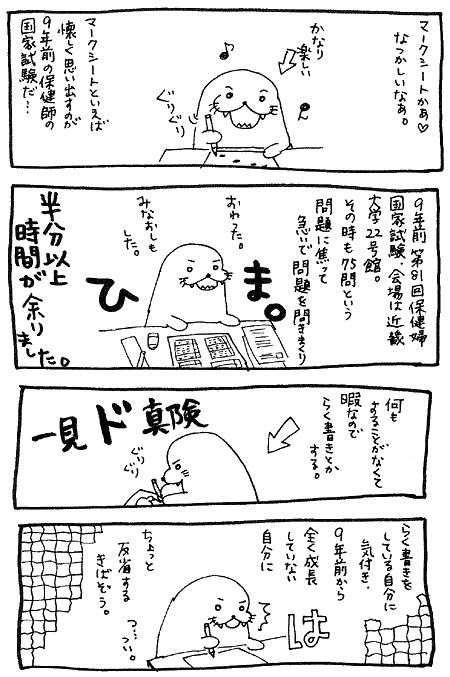 マークシートかぁ♡
なつかしいなぁ。
かなり
楽しい
ぐりぐり
マークシートといえば
懐しく思い出すのが
9年前の保健師の
国家試験だ…
9年前 第81回保健婦
国家試験、会場は近畿
大学22号館。
その時も75問という
問題に焦って
急いで問題を聞きまくり
おわった。
みなおしも
した。
ひま。
半分以上
時間が余り
ました。
何も
することがなくて
暇なので
らく書きとか
する。
ぐりぐり
一見ド真険
らく書きを
している自分に
気付き、
9年前から
全く成長
していない
自分に
は
ちょっと
反省する
きばぞう。
つ…
つい。